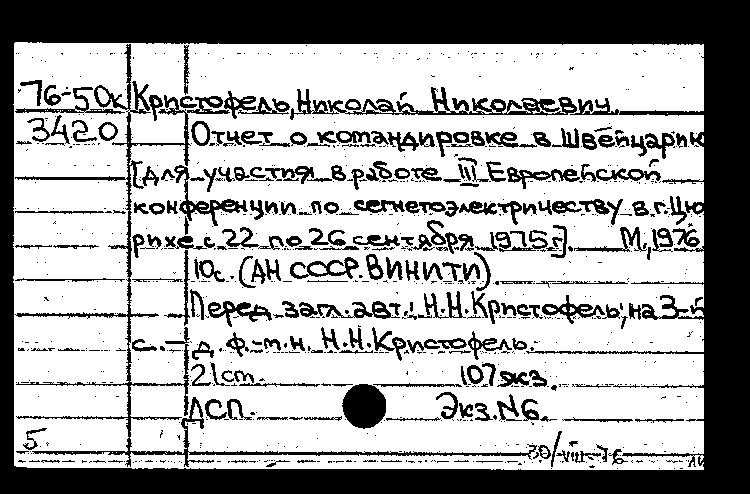 76-50к Кристофель, Николай Николаевич.
3420 Отчет о командировке в Швейцарию
[для участия в работе III Европейской
конференции по сегнетоэлектричеству в г. Цю
рихе с 22 по 26 сентября 1975г]. М., 1976
10с. (АН СССР. ВИНИТИ).
Перед загл. авт.: Н.Н. Кристофель; на 3-й
с. - д. ф.-м.н. Н.Н. Кристофель.
21 см. 107 экз.
ДСП. Экз. N6.
5. 30/VIII-76